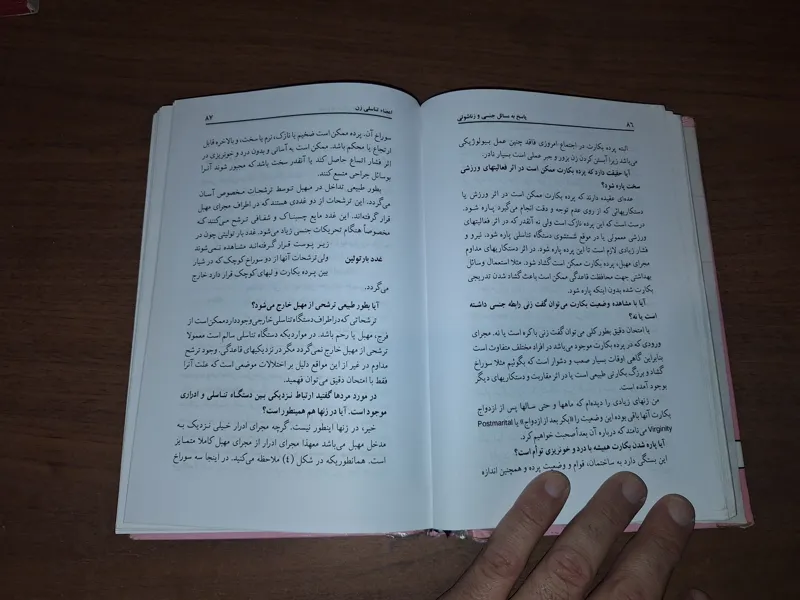 پاسخ به مسائل جنسی و زناشوئی ۸۶
البته پرده بکارت در اجتماع امروزی فاقد چنین عمل بیولوژیکی
می‌باشد زیرا آبستن کردن زن بزور و جبر عملی است بسیار نادر.
آیا حقیقت دارد که پرده بکارت ممکن است در اثر فعالیتهای ورزشی
سخت پاره شود؟
عده‌ای عقیده دارند که پرده بکارت ممکن است در اثر ورزش یا
دستکاریهائی که از روی عدم توجه و دقت انجام می‌گیرد پاره شود.
درست است که این پرده نازک است ولی نه آنقدر که در اثر فعالیتهای
ورزشی معمولی یا در موقع شستشوی دستگاه تناسلی پاره شود. نیرو و
فشار زیادی لازم است تا این پرده پاره شود. در اثر دستکاریهای مداوم
مجرای مهبل، پرده بکارت ممکن است گشاد شود. مثلا استعمال وسائل
بهداشتی جهت محافظت قاعدگی ممکن است باعث گشاد شدن تدریجی
بکارت شده بدون اینکه پاره شود.
آیا با مشاهده وضعیت بکارت می‌توان گفت زنی رابطه جنسی داشته
است یا نه؟
با امتحان دقیق بطور کلی می‌توان گفت زنی باکره است یا نه. مجرای
ورودی که در پرده بکارت موجود می‌باشد در افراد مختلف متفاوت است
بنابراین گاهی اوقات بسیار صعب و دشوار است که بگوئیم مثلا سوراخ
گشاد و بزرگ بکارتی طبیعی است یا در اثر مقاربت و دستکاریهای دیگر
بوجود آمده است.
من زنهای زیادی را دیده‌ام که ماهها و حتی سالها پس از ازدواج
بکارت آنها باقی بوده این وضعیت را «بکر بعد از ازدواج» یا Postmarital
Virginity می‌نامند که درباره آن بعداً صحبت خواهیم کرد.
آیا پاره شدن بکارت همیشه با درد و خونریزی توأم است؟
این بستگی دارد به ساختمان، قوام و وضعیت پرده و همچنین اندازه
اعضاء تناسلی زن ۸۷
سوراخ آن. پرده ممکن است ضخیم یا نازک، نرم یا سخت، و بالاخره قابل
ارتجاع یا محکم باشد. ممکن است به آسانی و بدون درد و خونریزی در
اثر فشار اتساع حاصل کند یا آنقدر سخت باشد که مجبور شوند آنرا
بوسائل جراحی متسع کنند.
بطور طبیعی تداخل در مهبل توسط ترشحات مخصوص آسان
می‌گردد. این ترشحات از دو غددی هستند که در اطراف مجرای مهبل
قرار گرفته‌اند. این غدد مایع چسبناک و شفافی ترشح می‌کنند که
مخصوصاً هنگام تحریکات جنسی زیاد می‌شود. غدد بارتولین چون در
زیر پوست قرار گرفته‌اند مشاهده نمی‌شوند
غدد بارتولین
ولی ترشحات آنها از دو سوراخ کوچک که در شیار
بین پرده بکارت و لبهای کوچک قرار دارد خارج
می‌گردد.
آیا بطور طبیعی ترشحی از مهبل خارج می‌شود؟
ترشحاتی که در اطراف دستگاه تناسلی خارجی وجود دارد ممکن است از
فرج، مهبل یا رحم باشد. در مواردیکه دستگاه تناسلی سالم است معمولا
ترشحی از مهبل خارج نمی‌گردد مگر در نزدیکیهای قاعدگی. وجود ترشح
مداوم در غیر از این مواقع دلیل بر اختلالات موضعی است که علت آنرا
فقط با امتحان دقیق می‌توان فهمید.
در مورد مردها گفتید ارتباط نزدیکی بین دستگاه تناسلی و ادراری
موجود است. آیا در زنها هم همینطور است؟
خیر، در زنها اینطور نیست. گرچه مجرای ادرار خیلی نزدیک به
مدخل مهبل می‌باشد معهذا مجرای ادرار از مجرای مهبل کاملا متمایز
است. همانطوریکه در شکل (۴) ملاحظه می‌کنید. در اینجا سه سوراخ